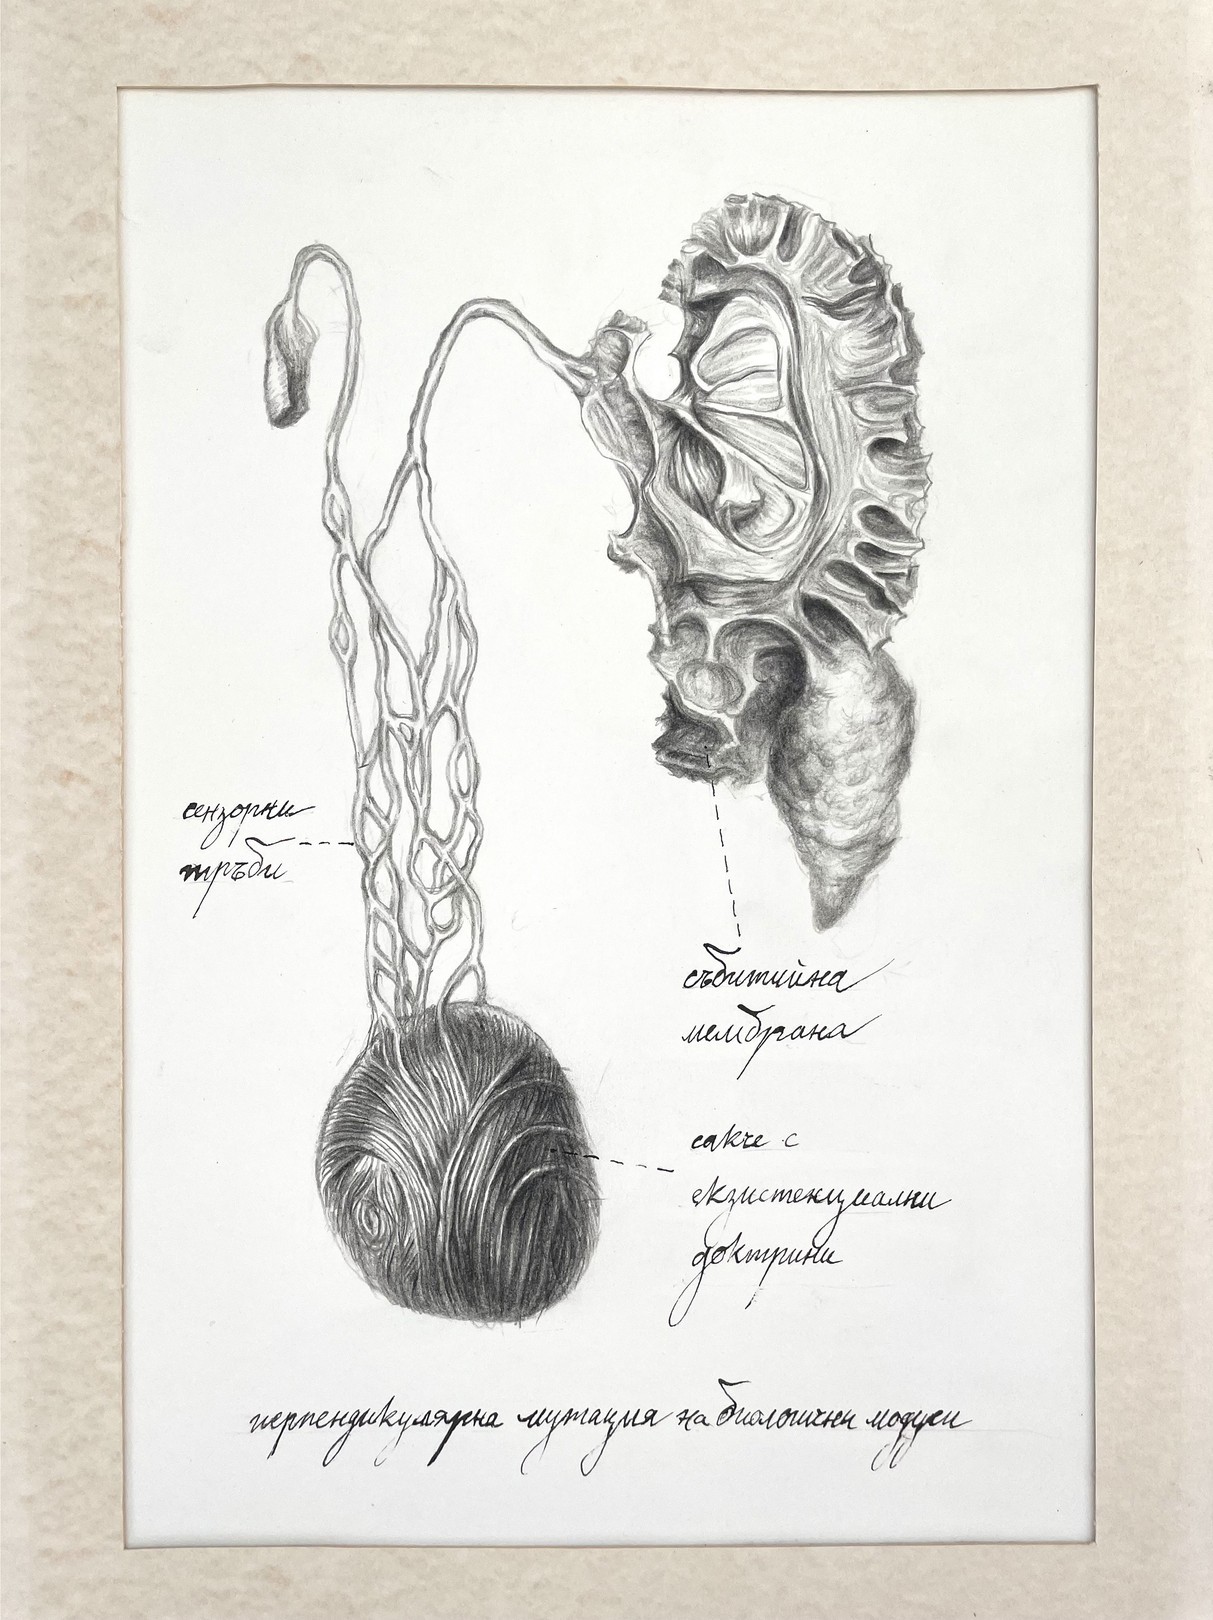 сензорни
тръби
събитийна
мембрана
сакче с
екзистенциални
доктрини
перпендикулярна мутация на биологични модуси